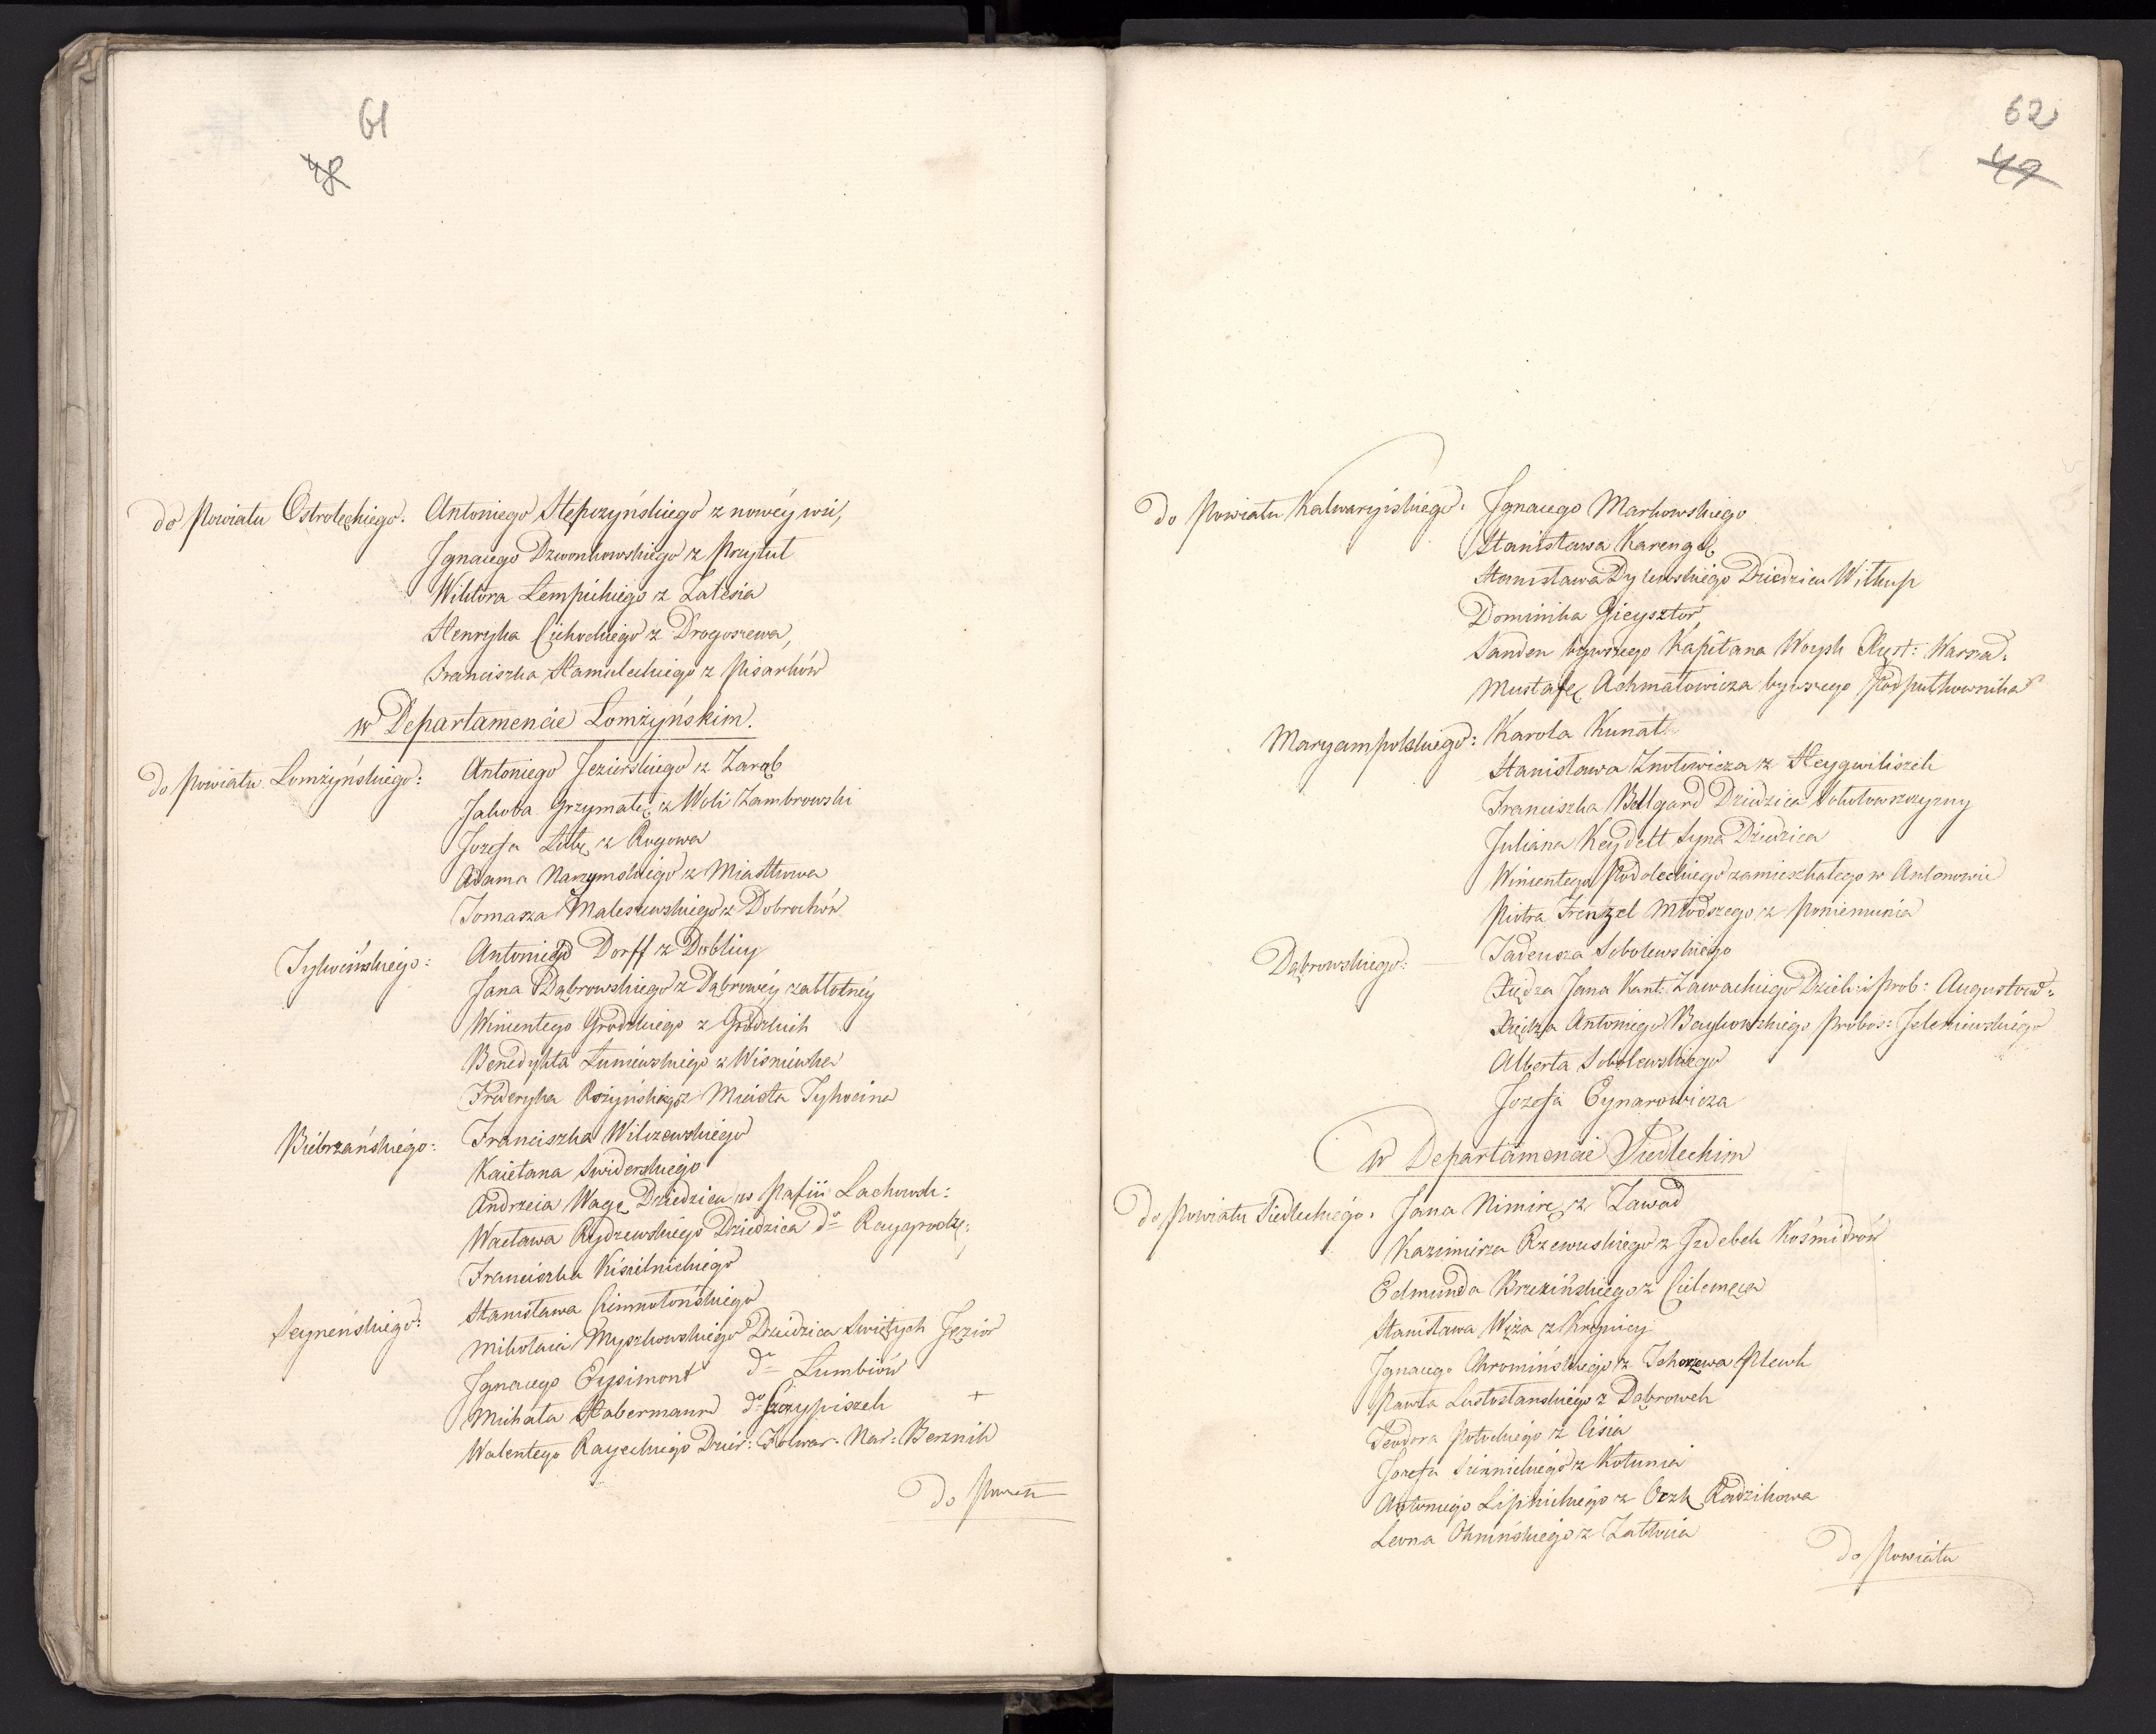 61
48
do Powiatu Ostrołęckiego. Antoniego Stępczyńskiego z nowéy wsi,
Jgnacego Dzwonkowskiego z Przytuł
Wiktora Łempickiego z Zalesia
Henryka Cichockiego z Drogoszewa,
Franciszka Stamieleckiego z Pisarków
w Departamencie Łomżyńskim.
do Powiatu Łomżyńskiego: Antoniego Jezierskiego z Zaręb
Jakoba Grzymałę z Woli Zambrowski
Jozefa Lubę z Rogowa
Adama Narzymskiego z Miastkowa
Tomasza Maleszewskiego z Dobrochów
Tykocińskiego: Antoniego Dorff z Doblicy
Jana Dąbrowskiego z Dąbrowéy zabłotnéy
Wincentego Grodzkiego z Grodzkich
Benedykta Łuniewskiego z Wiśniewka
Frideryka Rożyńskiego z Miasta Tykocina
Biebrzańskiego: Franciszka Wilczewskiego
Kaietana Swiderskiego
Andrzeia Wagę Dziedzica w Pafii Lachowsk:
Wacława Rydzewskiego Dziedzica do Raygrodz:
Franciszka Kisielnickiego
Seyneńskiego: Stanisława Cimnotońskiego
Mikołaia Myszkowskiego Dziedzica Swiętych Jezior
Jgnacego Eysimont do Lumbiów
Michała Habermann do Szczypiszek +
Walentego Rayeckiego Dzier: Folwar: Nar: Berznik
Do Powiatu
62
49
Do Powiatu Kalwaryiskiego: Jgnacego Markowskiego
Stanisława Karengę
Stanisława Dylewskiego Dziedzica Witkup
Dominika Gieysztor
Sanden bywszego Kapitana Woysk Xięst: Warsza:
Mustafę Achmatowicza bywszego Podpułkownika
Maryampolskiego: Karola Kunatt
Stanisława Znotowicza z Heygwiliszek
Franciszka Bellgard Dziedzica Sokołowszczyzny
Juliana Keydell Syna Dziedzica
Wincentego Podoleckiego zamieszkałego w Antonowie
Piotra Frenzel Młodszego z Poniemunia
Dąbrowskiego: Tadeusza Sobolewskiego
Xiędza Jana Kant: Zawackiego Dziek: i Prob: Augustow:
Xiędza Antoniego Baykowskiego Probos: Jeleniewskiego
Alberta Sobolewskiego
Jozefa Eynarowicza
w Departamencie Siedleckim
do Powiatu Siedleckiego. Jana Nimirę z Zawad
Kazimierza Rzewuskiego z Jzdebek Kośmidrów
Edmunda Brzezińskiego z Cielemęca
Stanisława Węża z Krynicy
Jgnacego Chromińskiego z Tchorzewa Plewk
Pawła Lastostanskiego z Dąbrowek
Teodora Potockiego z Cisia
Jozefa Suzinickiego z Kotunia
Antoniego Lipnickiego z Czzk Radzikowa
Leona Ohnińskiego z Zaltwia
Do Powiatu